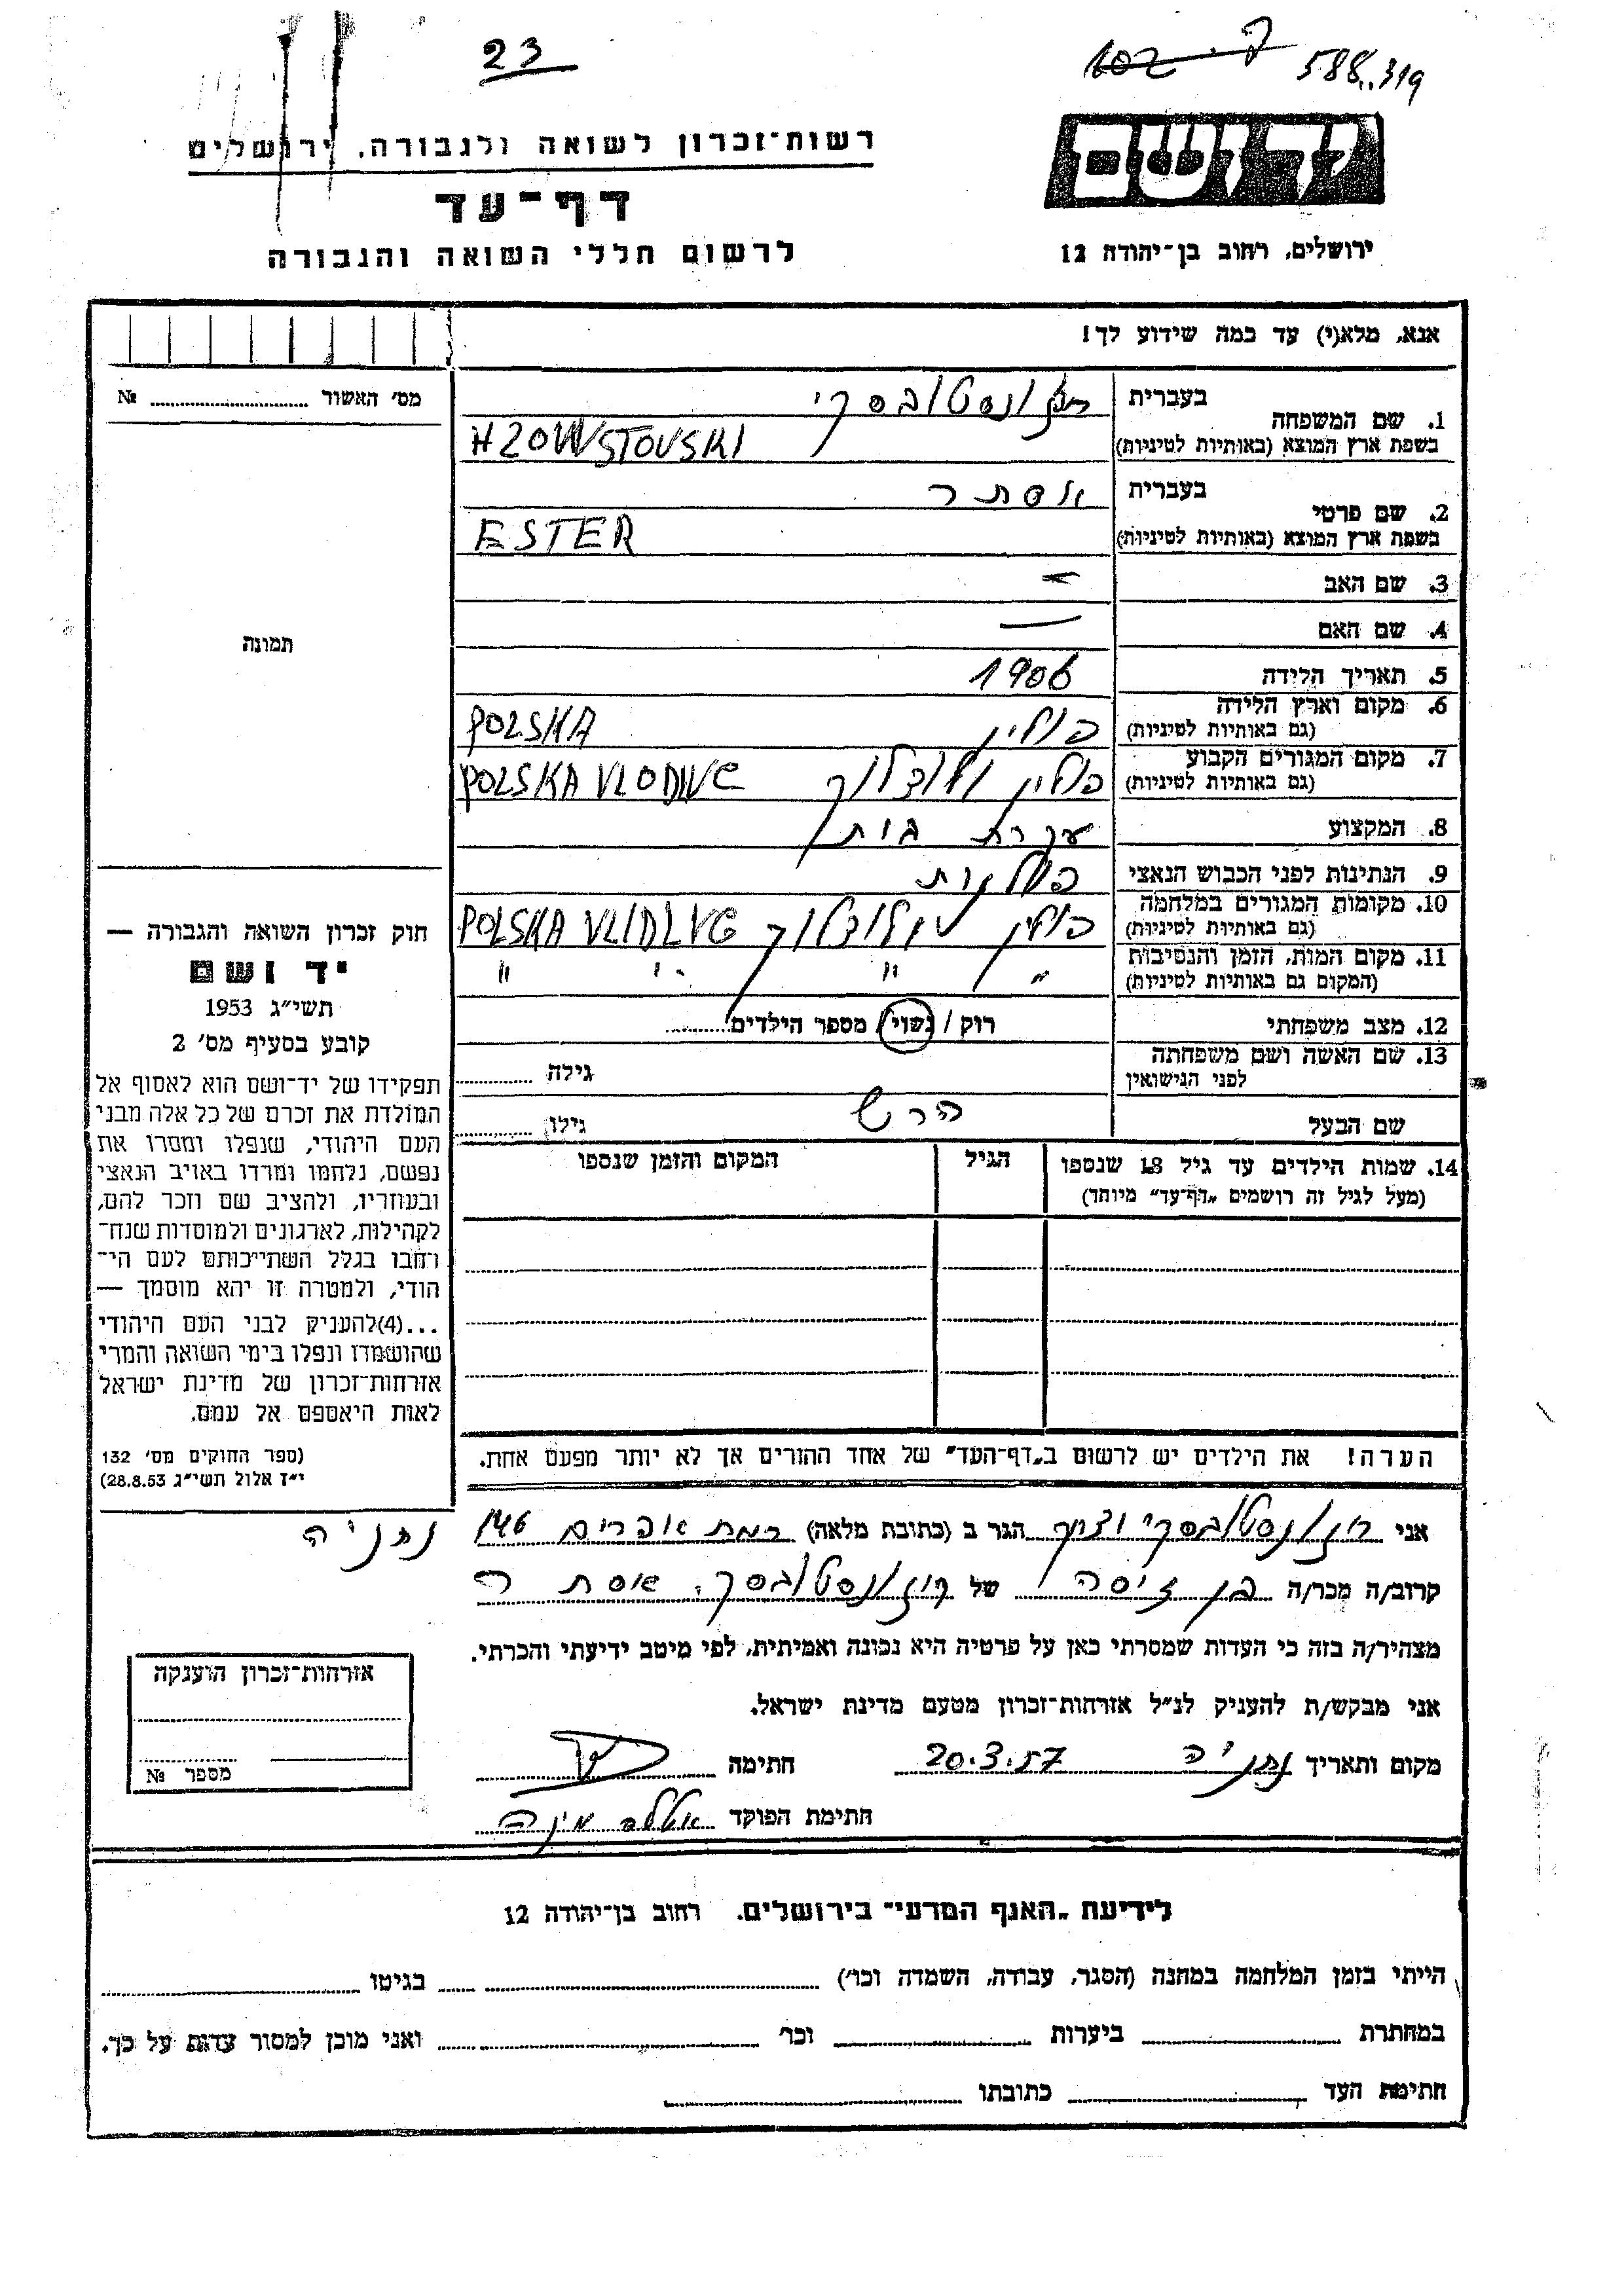 23
102 פ.
588..319
יד ושם
רשות־זכרון לשואה ולגבורה, ירושלים
דף־עד
לרשום חללי השואה והגבורה
ירושלים, רחוב בן־יהודה 12
אנא, מלא(י) עד כמה שידוע לך!
מס' האשור № ........
תמונה
חוק זכרון השואה והגבורה —
יד ושם
תשי״ג 1953
קובע בסעיף מס' 2
תפקידו של יד־ושם הוא לאסוף אל
המולדת את זכרם של כל אלה מבני
העם היהודי, שנפלו ומסרו את
נפשם, נלחמו ומרדו באויב הנאצי
ובעוזריו, ולהציב שם וזכר להם,
לקהילות, לארגונים ולמוסדות שנח־
רבו בגלל השתייכותם לעם הי־
הודי, ולמטרה זו יהא מוסמך —
...(4)להעניק לבני העם היהודי
שהושמדו ונפלו בימי השואה והמרי
אזרחות־זכרון של מדינת ישראל
לאות היאספם אל עמם.
(ספר החוקים מס' 132
י״ז אלול תשי״ג 28.8.53)
1. שם המשפחה בעברית
בשפת ארץ המוצא (באותיות לטיניות) HZOWNSTOVSKI
2. שם פרטי בעברית אסתר
בשפת ארץ המוצא (באותיות לטיניות) ESTER
3. שם האב —
4. שם האם —
5. תאריך הלידה 1906
6. מקום וארץ הלידה פולין POLSKA
(גם באותיות לטיניות)
7. מקום המגורים הקבוע פולין POLSKA VLODIVC
(גם באותיות לטיניות)
8. המקצוע עקרת בית
9. הנתינות לפני הכבוש הנאצי פולנית
10. מקומות המגורים במלחמה פולין POLSKA VLIDLVC
(גם באותיות לטיניות)
11. מקום המות, הזמן והנסיבות " " " "
(המקום גם באותיות לטיניות)
12. מצב משפחתי רווק / נשוי / מספר הילדים........
13. שם האשה ושם משפחתה גילה ........
לפני הנישואין
שם הבעל הרש גילו ........
14. שמות הילדים עד גיל 18 שנספו הגיל המקום והזמן שנספו
(מעל לגיל זה רושמים „דף־עד" מיוחד)
הערה! את הילדים יש לרשום ב„דף־העד" של אחד ההורים אך לא יותר מפעם אחת.
אני הגר ב (כתובת מלאה) רמת אפרים 146 נתניה
קרוב/ה מכר/ה של אסתר
מצהיר/ה בזה כי העדות שמסרתי כאן על פרטיה היא נכונה ואמיתית, לפי מיטב ידיעתי והכרתי.
אני מבקש/ת להעניק לנ״ל אזרחות־זכרון מטעם מדינת ישראל.
מקום ותאריך נתניה 20.3.57 חתימה
חתימת הפוקד
אזרחות־זכרון הוענקה
מספר №
לידיעת „האגף המדעי" בירושלים, רחוב בן־יהודה 12
הייתי בזמן המלחמה במחנה (הסגר, עבודה, השמדה וכו') ........ בגיטו ........
במחתרת ........ ביערות ........ וכו' ........ ואני מוכן למסור עדות על כך.
חתימת העד ........ כתובתו ........